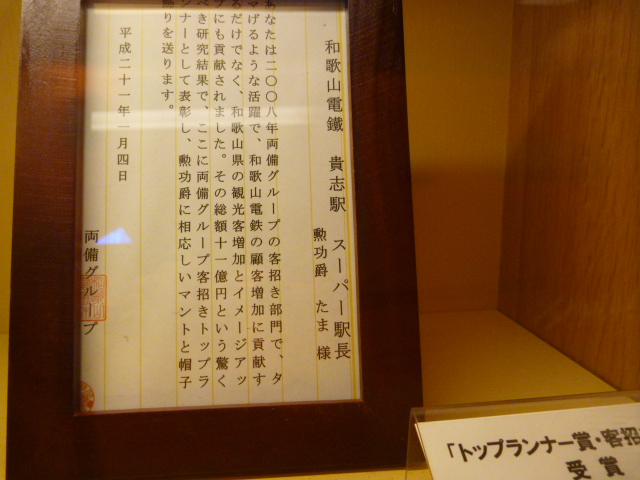 和歌山電鐵　貴志駅　スーパー駅長
勲功爵　たま　様
あなたは二〇〇八年両備グループの客招き部門で、タ
マげるような活躍で、和歌山電鉄の顧客増加に貢献す
るだけでなく、和歌山県の観光客増加とイメージアッ
プにも貢献されました。その総額十一億円という驚く
べき研究結果で、ここに両備グループ客招きトップラ
ンナーとして表彰し、勲功爵に相応しいマントと帽子
飾りを送ります。
平成二十一年一月四日
両備グループ
「トップランナー賞・客招
受賞